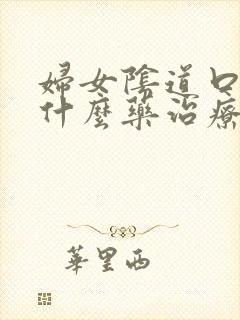 婦女陰道口
什麼藥治療
華里西